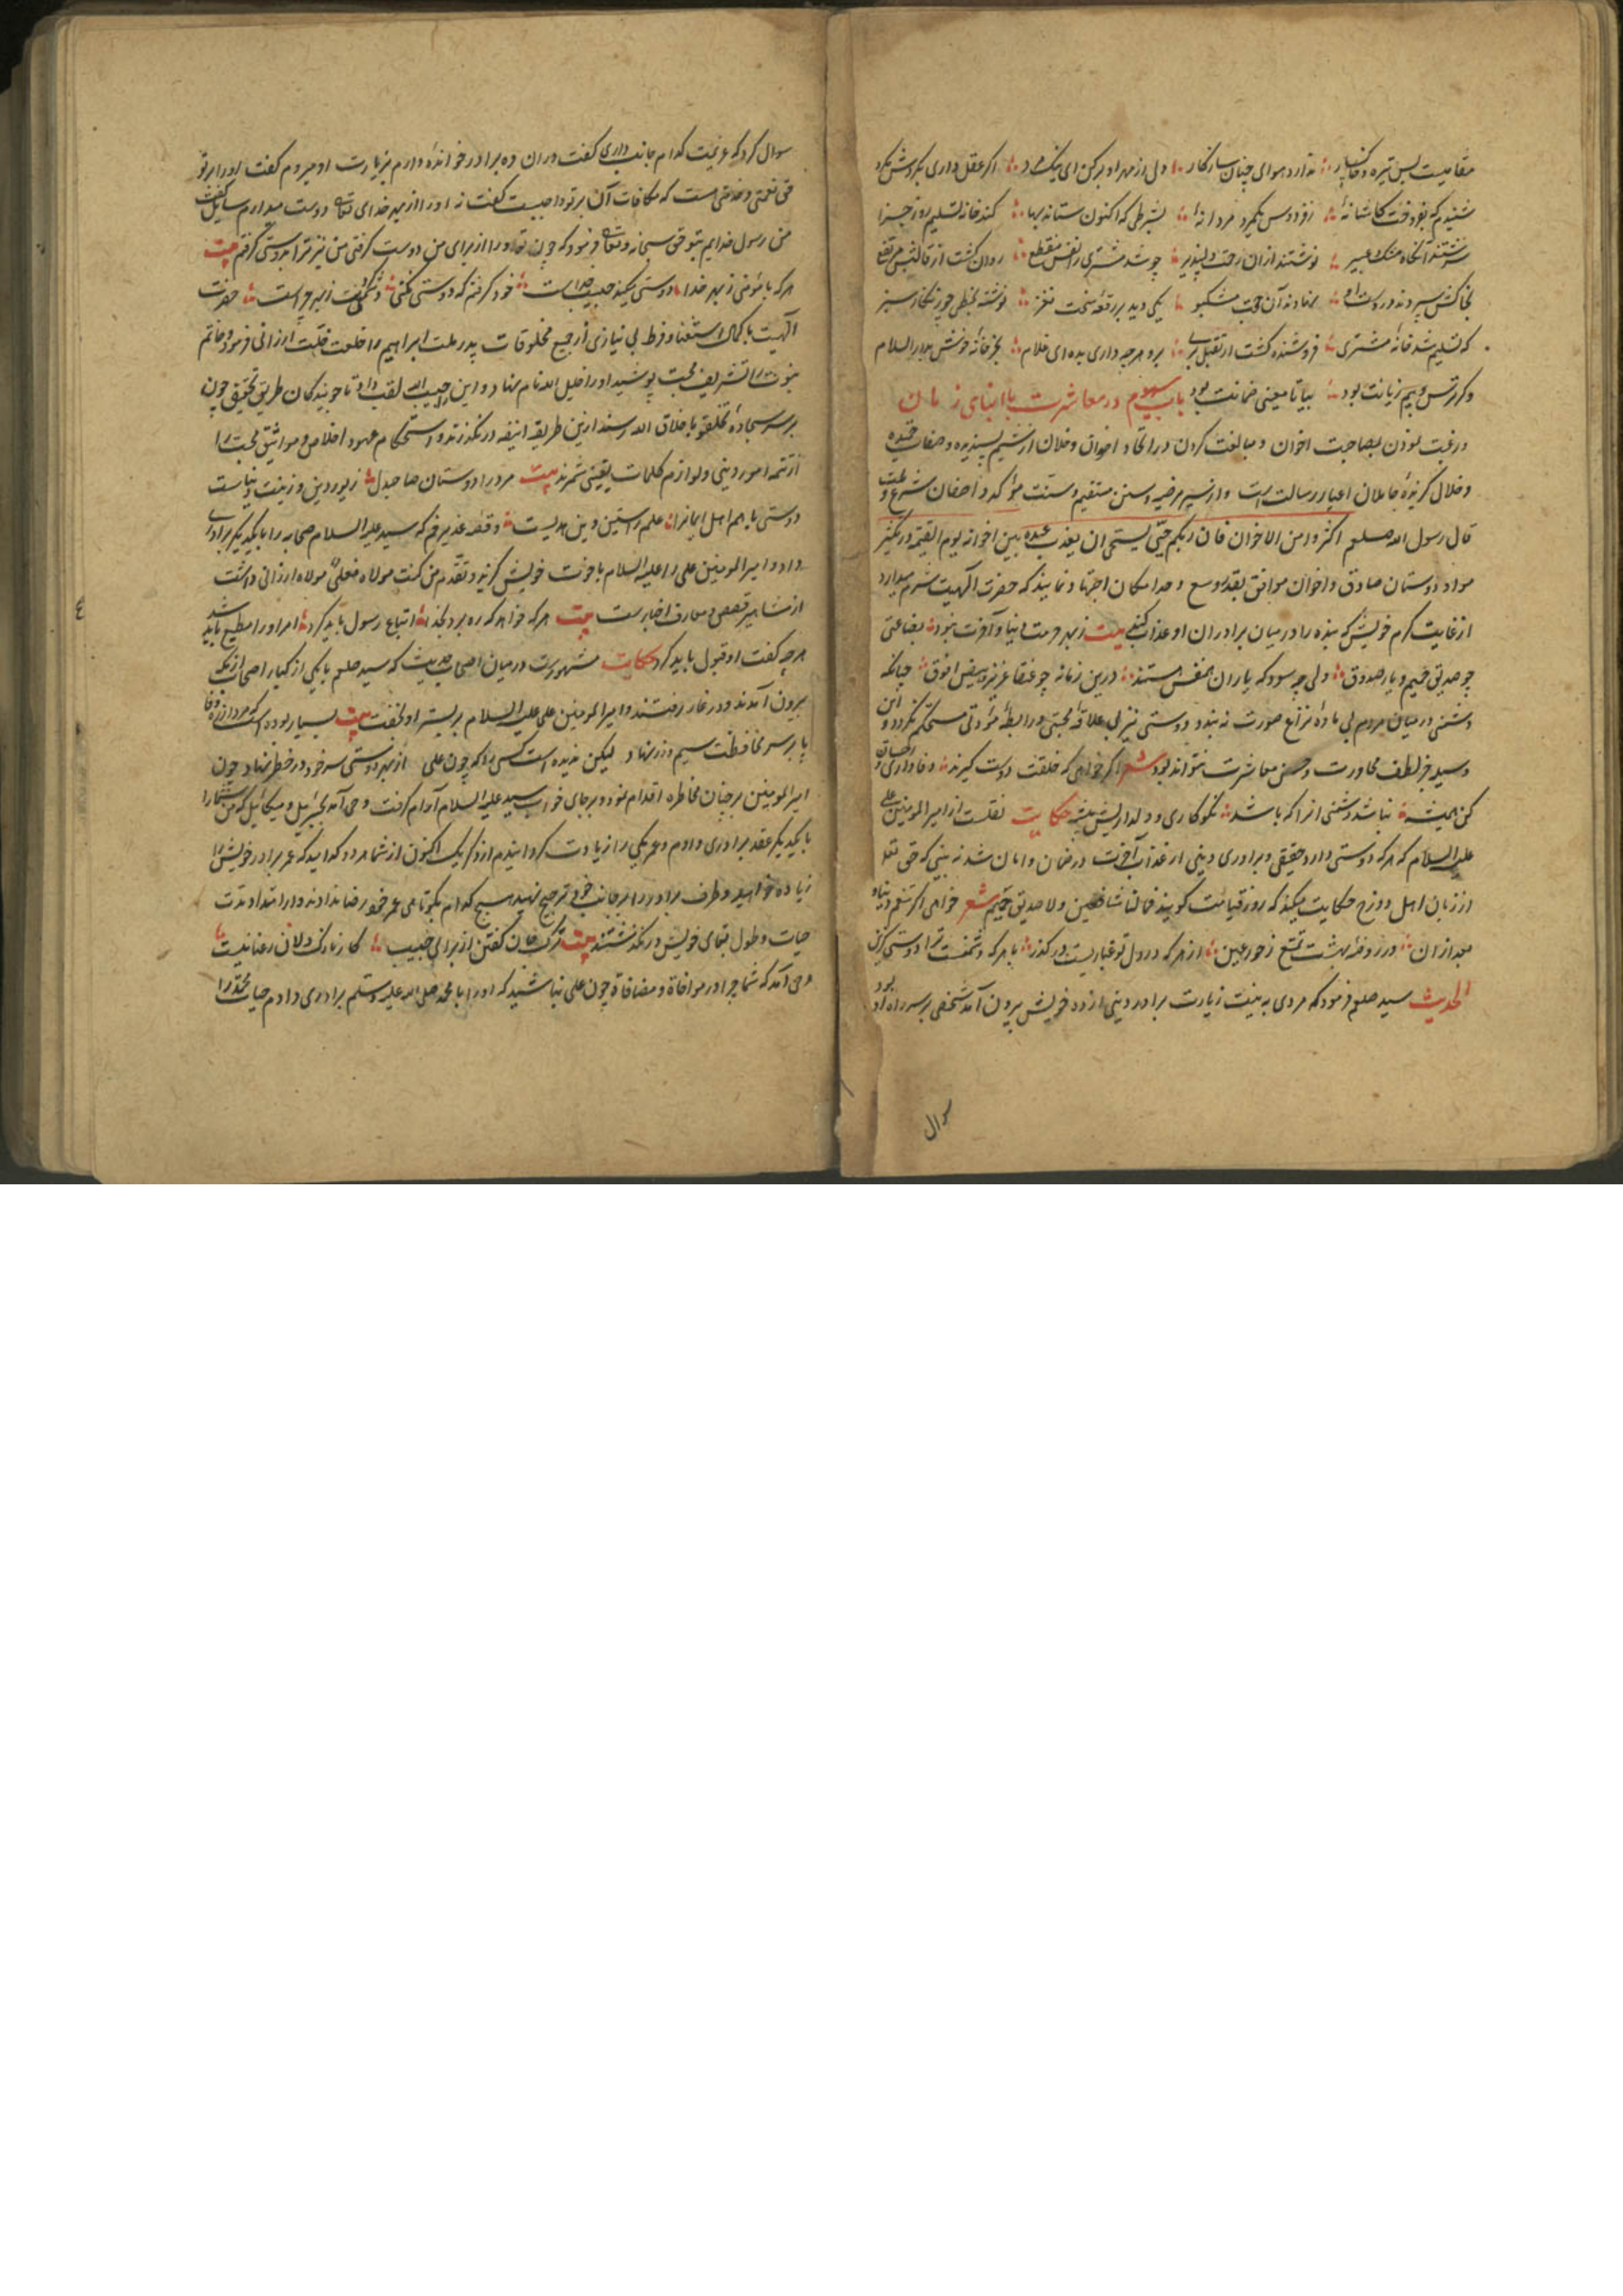 مقامیست بس تیره و ندارد هوای چنان سازکار ولی زر مهر او برکن ای نیک مرد اکر عقل داری بکردش مکرد
شنیدم که بفروخت کاشانهٔ ز فردوس بکیرد مردانهٔ بشرطی که اکنون ستاند بها کند خانه تسلیم روز جزا
نوشتند از آن رخت دلپذیر چو شد مشتری را نفس منقطع روان کشت از قالبش
بخاکش سپردند در نهادند آن حجت مشکبو یکی دید بر رقعهٔ سخت نغز نوشته بخطی چو سبز
که تسلیم شد خانهٔ مشتری فروشنده کشت از تقبل بری برو هر چه داری بده ای غلام بخر خانهٔ خوش بدار السلام
وکر ترس و بیم زیانت بود بیا تا معینی ضمانت بود باب سیوم در معاشرت با ابنای زمان
و رغبت نمودن بمصاحبت اخوان و مبالغت کردن در اتحاد اخوان و خلان از شیم پسندیده و صفات حمیده
و خلال کزیدهٔ حاملان اعبار رسالت است و از سیر مرضیه و سنن مستقیم و سنت مؤکد واصفان شرع و ملت
قال رسول الله صلعم اکثروا من الاخوان فان ربکم حیی یستحی ان یعذب عبده بین اخوانه یوم القیمه در تکثیر
مواد دوستان صادق و اخوان موافق بقدر وسع و حد امکان اجتهاد نمایند که حضرت الهیت شرم میدارد
از غایت کرم خویش که بنده را در میان برادران او عذاب کند بیت ز بهر حرمت دنیا و آخرت نبود بضاعتی
چو صدیق حمیم و یار صدوق ولی چه سود که یاران همنفس هستند درین زمانه چو عنقا عزیز و بیض انوق چنانکه
دشمنی در میان مردم بی مادهٔ نزاع صورت نه بندد دوستی نیز بی علاقهٔ محبتی و رابطهٔ مودتی مستحکم نکردد و این
وسیله جز لطف محاورت و حسن معاشرت نتواند بود شعر اکر خواهی که خلقت دوست کیرند وفاداری و احسان
کن همیشه نباشد دشمنی انرا که باشد نکوکاری و دلداریش پیشه حکایت نقلست از امیر المومنین علی
علیه السلام که هر که دوستی دارد حقیقی و برادری دینی از عذاب آخرت در ضمان و امان شد نه بینی که حق تعالی
از زبان اهل دوزخ حکایت میکند که روز قیامت کویند فما لنا من شافعین ولا صدیق حمیم شعر خواهی اکر تنعم دنیا و
بعد از ان در روضهٔ بهشت تمتع ز حور عین از هر که در دل تو غباریست در کذر با هر که دشمنست ترا دوستی کزین
الحدیث سید صلعم فرمود که مردی به نیت زیارت برادر دینی از ده خویش بیرون آمد شخصی بر سر راه او بود
سوال
سوال کرد که عزیمت کدام جانب داری کفت در ان ده برادر خواندهٔ دارم بزیارت او میروم کفت او را بر تو
حق نعمتی و خدمتی است که مکافات آن بر تو واجبست کفت نه او را از بهر خدای تعالی دوست میدارم سایل کفت
من رسول خدایم بتو حق سبحانه و تعالی فرمود که چون تو او را از برای من دوست کرفتی من نیز ترا بدوستی کرفتم بیت
هر که با مؤمنی ز بهر خدا دوستی میکند حبیب خداست خود کرفتم که دوستی نکنی دشمنی کردنت ز بهر چراست حضرت
الهیت با کمال استغنا و فرط بی نیازی از جمیع مخلوقات پدر ملت ابراهیم را خلعت خلت ارزانی فرمود و خاتم
نبوت را تشریف محبت پوشید او را خلیل الله نام نهاد و این را حبیب الله لقب داد تا جویندکان طریق تحقیق چون
بر سر سجادهٔ تخلقوا باخلاق الله رسند ازین طریقهٔ انیقه در نکذرند و استحکام عهود اخلاص و مواثیق محبت را
از تتمه امور دینی و لوازم کلمات یقینی شمرند بیت مرد را دوستان صاحبدل زیور دین و زینت دنیاست
دوستی با هم اهل ایمانرا علم راستین دین هدیست وقعهٔ غدیر خم که سید علیه السلام صحابه را با یکدیکر برادری
داد و امیر المومنین علی را علیه السلام باخوت خویش کزید و تقدم من کنت مولاه فعلی مولاه ارزانی داشت
از مشاهیر قصص و معارف اخبارست بیت هر که خواهد که ره برد بخدا اتباع رسول باید کرد امر او را مطیع باید شد
هر چه کفت او قبول باید کرد حکایت مشهورست در میان اصحاب حدیث که سید صلعم با یکی از کبار اصحاب از مکه
بیرون آمدند و در غار رفتند و امیر المومنین علی علیه السلام بر بستر او بخفت بیت بسیار بوده است که مرد از ره وفا
پا بر سر محافظت سیم و زر نهاد لیکن ندیده است کسی را که چون علی از بهر دوستی سر خود در خطر نهاد چون
امیر المومنین بر چنان مخاطره اقدام نمود و بر جای خواب سید علیه السلام آرام کرفت وحی آمد بجبرئیل و میکائیل که من شما را
با یکدیکر عقد برادری دادم و عمر یکی را زیادت کردانیدم از دکر یک اکنون از شما هر دو کدامید که عمر برادر خویش را
زیاده خواهید و طرف برادر را بر جانب خود ترجیح نهید هیچ کدام بکوتاهی عمر خود رضا ندادند و از امتداد مدت
حیات و طول بقای خویش در نکذشتند بیت ترک جان کفتن از برای حبیب کار نازک دلان رعنا نیست
وحی آمد که شما چرا در مواخاة و مصافاة چون علی نباشید که او را با محمد صلی الله علیه وسلم برادری دادم حیات محمد را